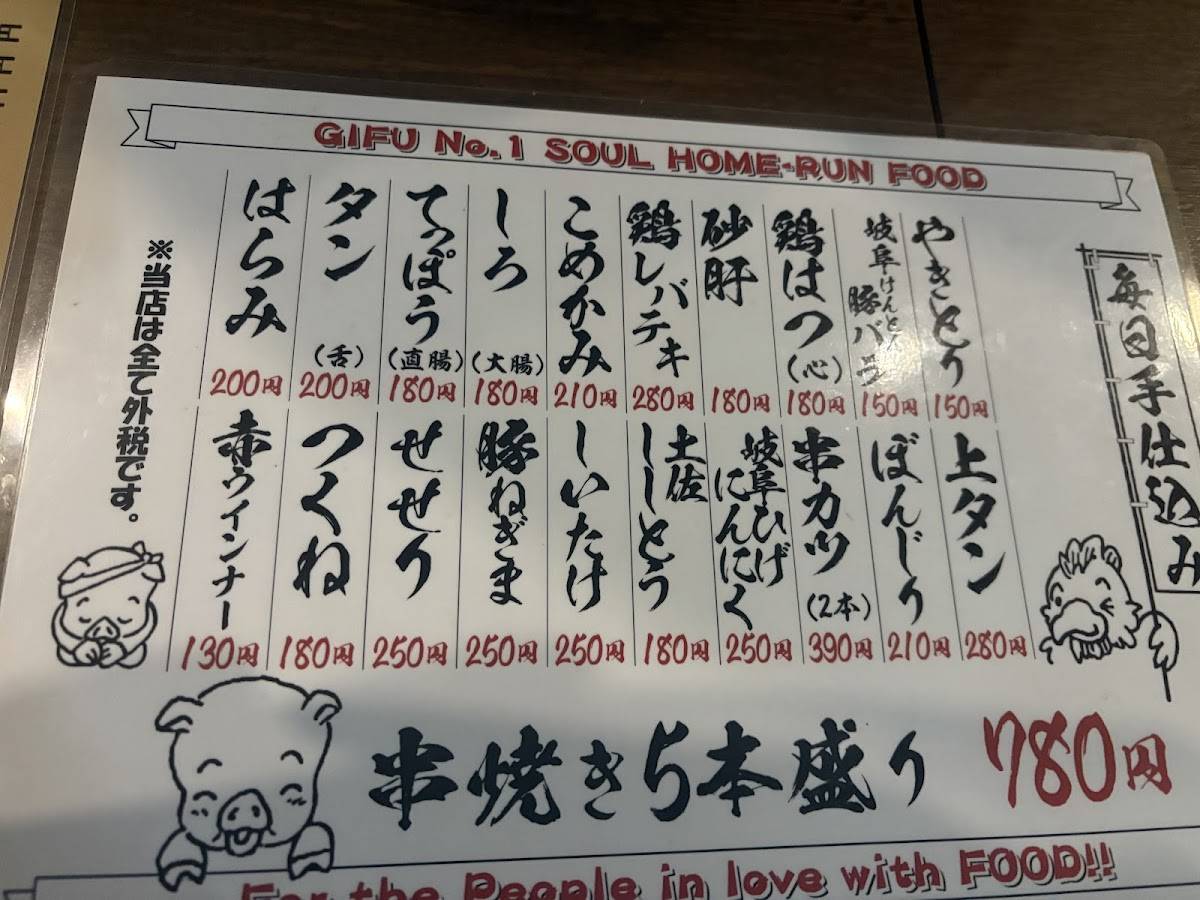 GIFU No.1 SOUL HOME-RUN FOOD
毎日手仕込み
やきとり 150円
岐阜けんとん豚バラ 150円
鶏はつ(心) 180円
砂肝 180円
鶏レバテキ 280円
こめかみ 210円
しろ(大腸) 180円
てっぽう(直腸) 180円
タン(舌) 200円
はらみ 200円
上タン 280円
ぼんじり 210円
串カツ(2本) 390円
岐阜ひげにんにく 250円
土佐ししとう 180円
しいたけ 250円
豚ねぎま 250円
せせり 250円
つくね 180円
赤ウインナー 130円
※当店は全て外税です。
串焼き5本盛り 780円
For the People in love with FOOD!!